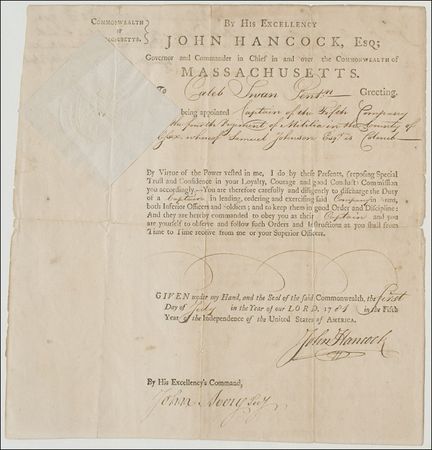 COMMONWEALTH
OF
MASSACHUSETTS.
BY HIS EXCELLENCY
JOHN HANCOCK, Esq;
Governor and Commander in Chief in and over the COMMONWEALTH of
MASSACHUSETTS.
To Caleb Swan Gentn Greeting.
being appointed Captain of the Fifth Company
the fourth Regiment of Militia in the County of
Essex whereof Samuel Johnson Esqr is Colonel
By Virtue of the Power vested in me, I do by these Presents, (reposing Special
Trust and Confidence in your Loyalty, Courage and good Conduct) Commission
you accordingly.—You are therefore carefully and diligently to discharge the Duty
of a Captain in leading, ordering and exercising said Company in Arms,
both Inferior Officers and Soldiers; and to keep them in good Order and Discipline:
And they are hereby commanded to obey you as their Captain and you
are yourself to observe and follow such Orders and Instructions as you shall from
Time to Time receive from me or your Superior Officers.
GIVEN under my Hand, and the Seal of the said Commonwealth, the first
Day of July in the Year of our LORD, 1781 in the Fifth
Year of the Independence of the United States of AMERICA.
John Hancock
By His Excellency's Command,
John Avery Secy